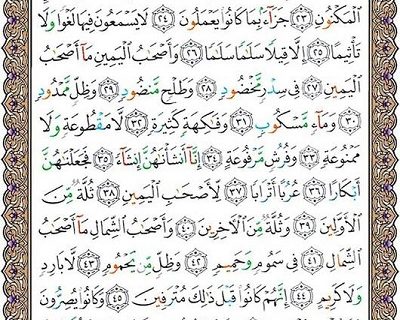 ٱلْمَكْنُونِ ﴿٢٣﴾ جَزَآءًۢ بِمَا كَانُوا۟ يَعْمَلُونَ ﴿٢٤﴾ لَا يَسْمَعُونَ فِيهَا لَغْوًا وَلَا
تَأْثِيمًا ﴿٢٥﴾ إِلَّا قِيلًا سَلَٰمًا سَلَٰمًا ﴿٢٦﴾ وَأَصْحَٰبُ ٱلْيَمِينِ مَآ أَصْحَٰبُ
ٱلْيَمِينِ ﴿٢٧﴾ فِى سِدْرٍ مَّخْضُودٍ ﴿٢٨﴾ وَطَلْحٍ مَّنضُودٍ ﴿٢٩﴾ وَظِلٍّ مَّمْدُودٍ
﴿٣٠﴾ وَمَآءٍ مَّسْكُوبٍ ﴿٣١﴾ وَفَٰكِهَةٍ كَثِيرَةٍ ﴿٣٢﴾ لَّا مَقْطُوعَةٍ وَلَا
مَمْنُوعَةٍ ﴿٣٣﴾ وَفُرُشٍ مَّرْفُوعَةٍ ﴿٣٤﴾ إِنَّآ أَنشَأْنَٰهُنَّ إِنشَآءً ﴿٣٥﴾ فَجَعَلْنَٰهُنَّ
أَبْكَارًا ﴿٣٦﴾ عُرُبًا أَتْرَابًا ﴿٣٧﴾ لِّأَصْحَٰبِ ٱلْيَمِينِ ﴿٣٨﴾ ثُلَّةٌ مِّنَ
ٱلْأَوَّلِينَ ﴿٣٩﴾ وَثُلَّةٌ مِّنَ ٱلْءَاخِرِينَ ﴿٤٠﴾ وَأَصْحَٰبُ ٱلشِّمَالِ مَآ أَصْحَٰبُ
ٱلشِّمَالِ ﴿٤١﴾ فِى سَمُومٍ وَحَمِيمٍ ﴿٤٢﴾ وَظِلٍّ مِّن يَحْمُومٍ ﴿٤٣﴾ لَّا بَارِدٍ
وَلَا كَرِيمٍ ﴿٤٤﴾ إِنَّهُمْ كَانُوا۟ قَبْلَ ذَٰلِكَ مُتْرَفِينَ ﴿٤٥﴾ وَكَانُوا۟ يُصِرُّونَ